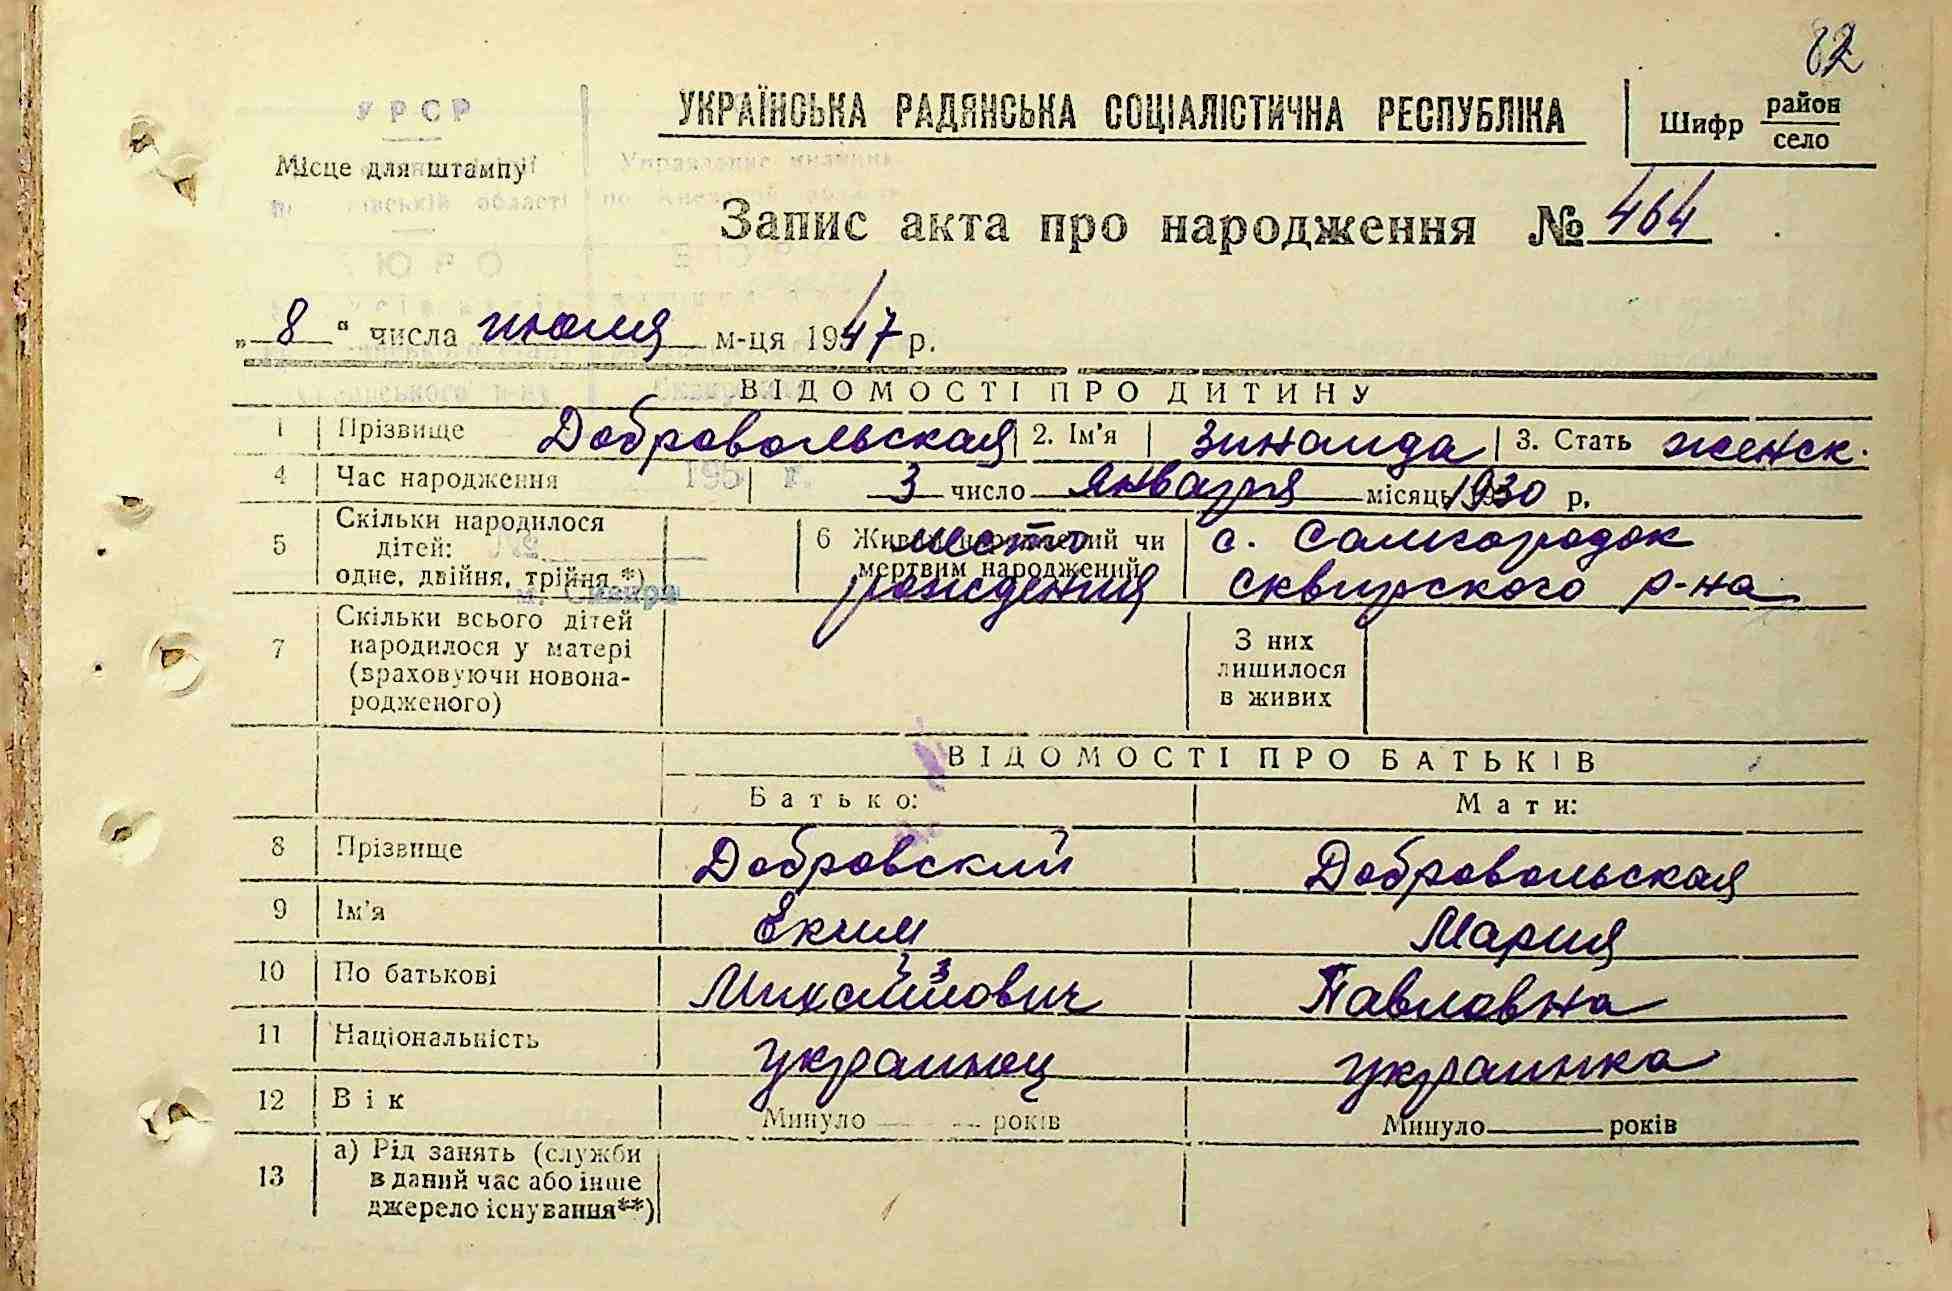 82
УРСР
УКРАЇНСЬКА РАДЯНСЬКА СОЦІАЛІСТИЧНА РЕСПУБЛІКА
Шифр район
село
Місце для штампу
Запис акта про народження № 464
„ 8 “ числа июля м-ця 1947 р.
ВІДОМОСТІ ПРО ДИТИНУ
1 Прізвище Добровольская 2. Ім'я Зинаида 3. Стать женск.
4 Час народження 3 число января місяць 1930 р.
5 Скільки народилося дітей: одне, двійня, трійня *)
м. Сквира
6 Живим народжений чи мертвим народжений
место рождения
с. Самгородок
Сквирского р-на
7 Скільки всього дітей народилося у матері (враховуючи новонародженого)
З них лишилося в живих
ВІДОМОСТІ ПРО БАТЬКІВ
Батько: Мати:
8 Прізвище Добровский Добровольская
9 Ім'я Еким Мария
10 По батькові Михайлович Павловна
11 Національність украинец украинка
12 Вік Минуло років Минуло років
13 а) Рід занять (служби
в даний час або інше
джерело існування**)